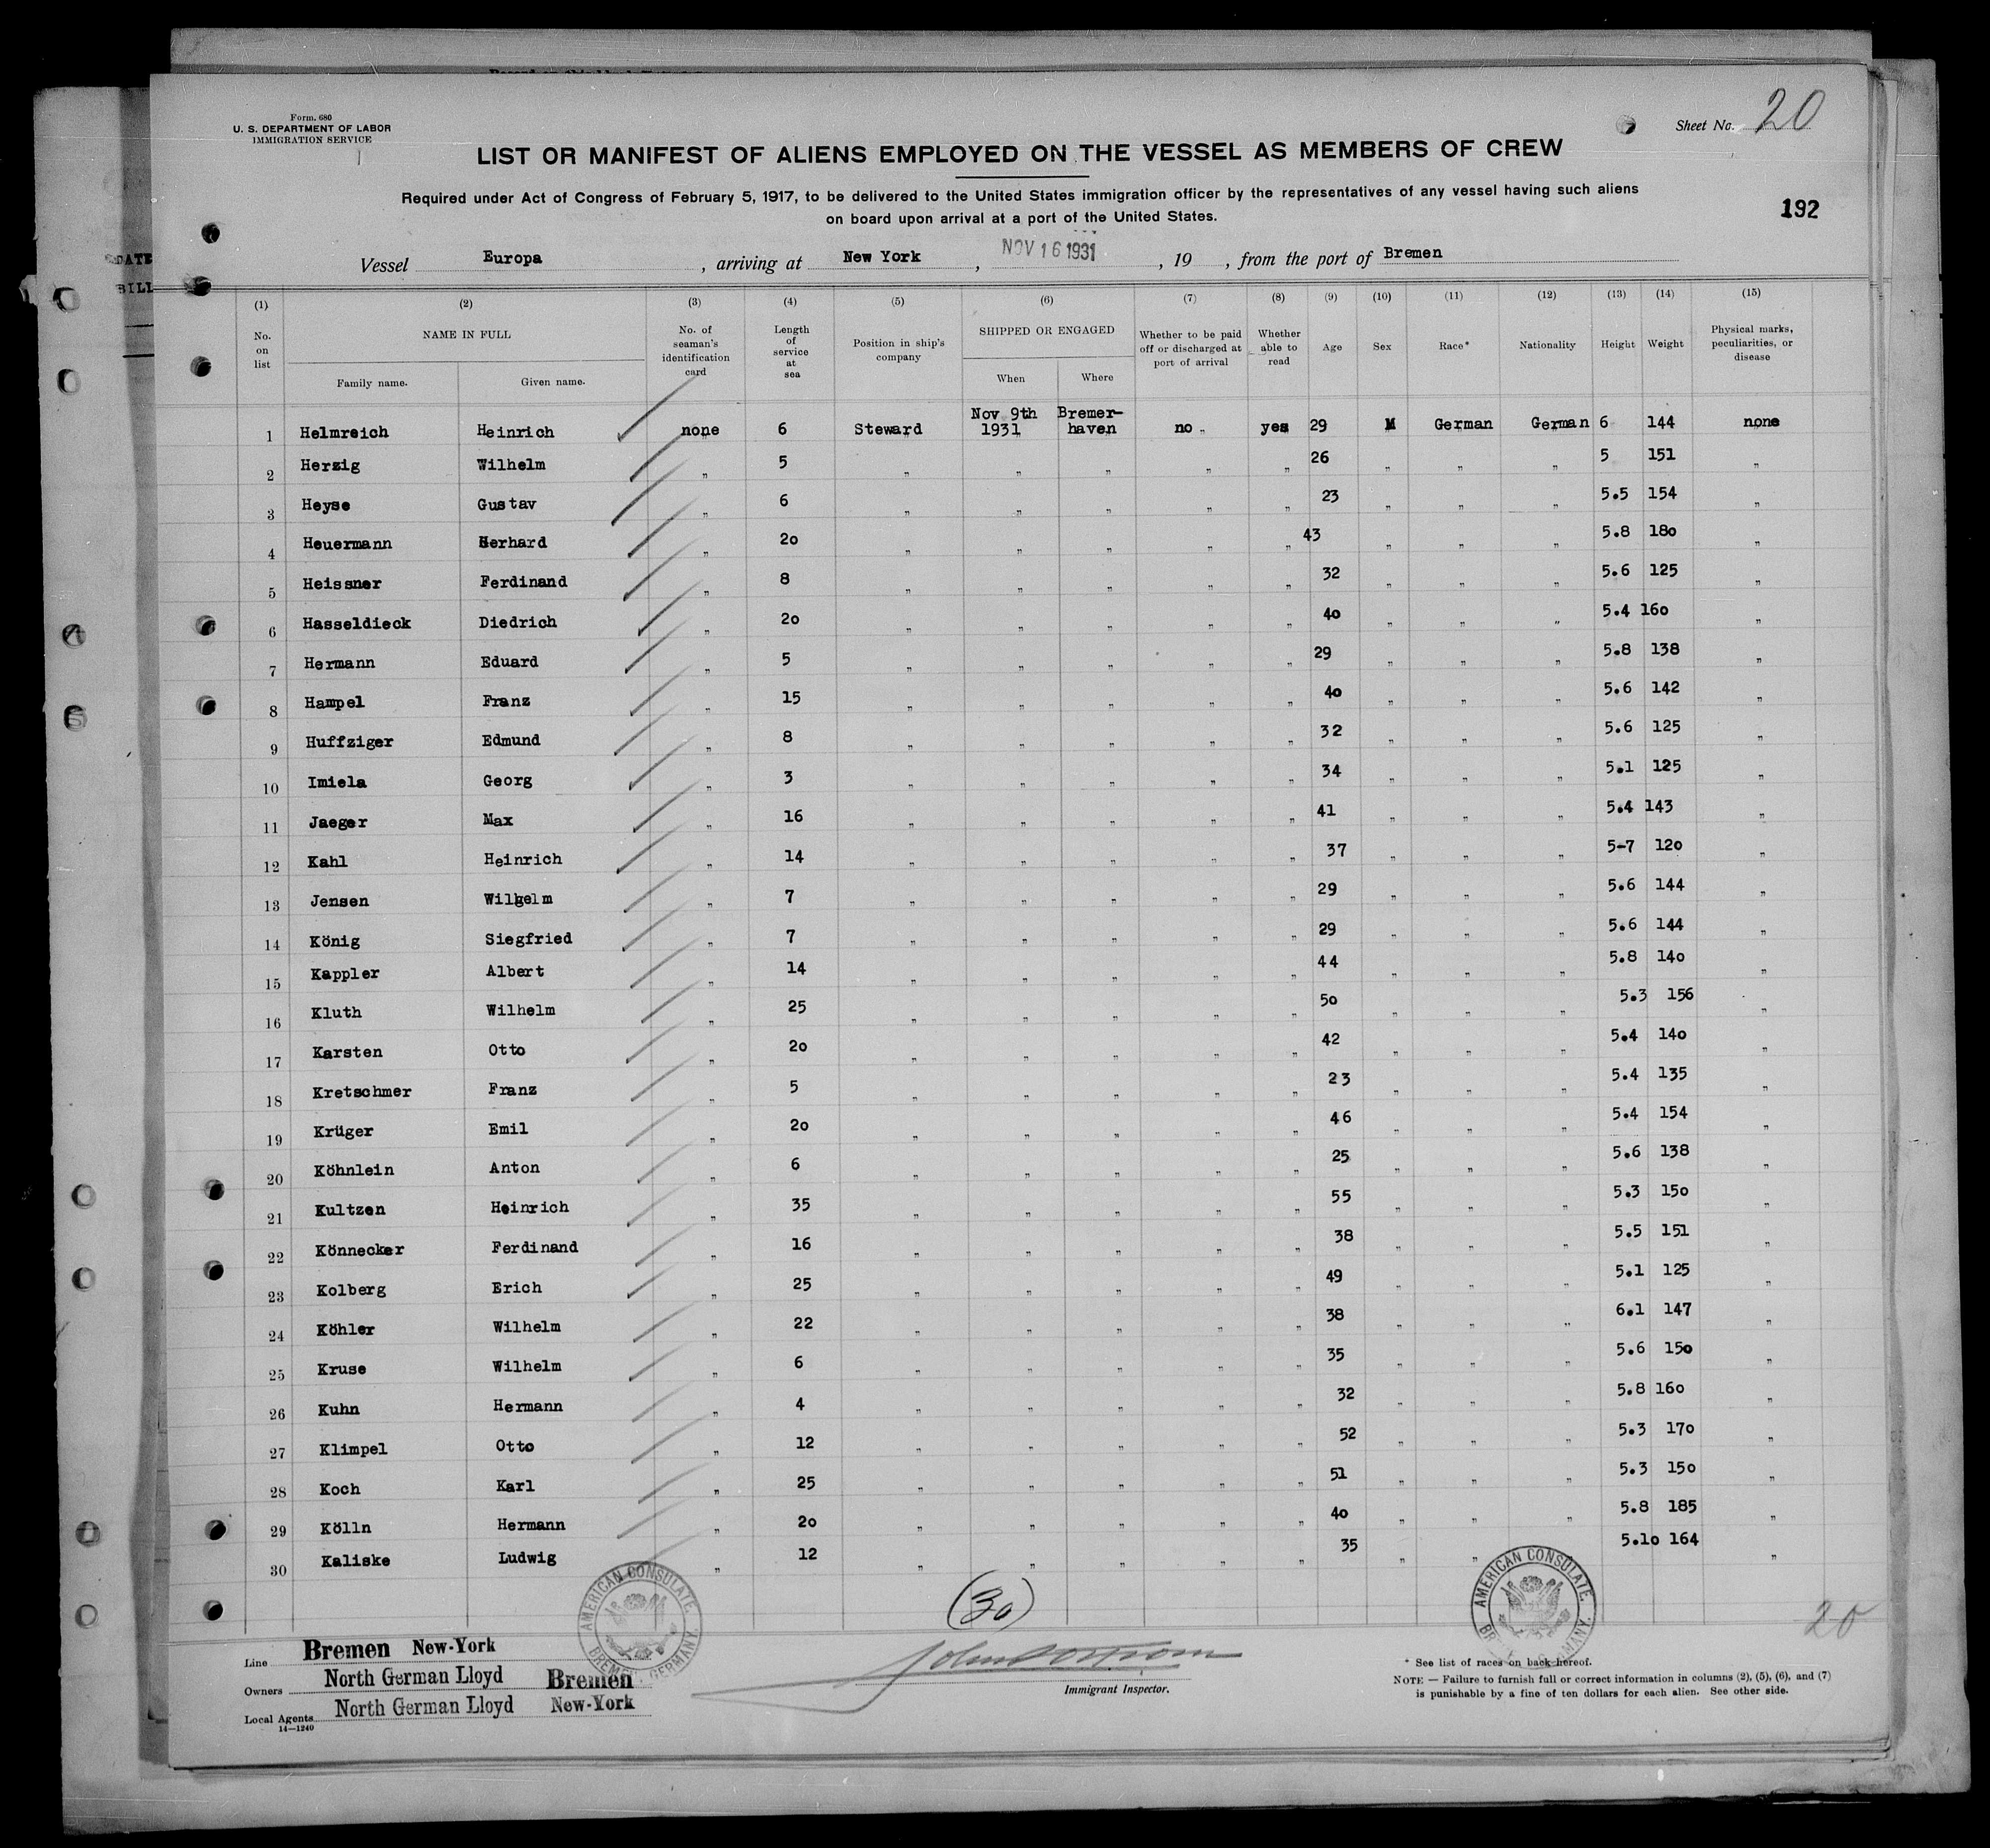 Form. 680
U. S. DEPARTMENT OF LABOR
IMMIGRATION SERVICE
Sheet No. 20
LIST OR MANIFEST OF ALIENS EMPLOYED ON THE VESSEL AS MEMBERS OF CREW
Required under Act of Congress of February 5, 1917, to be delivered to the United States immigration officer by the representatives of any vessel having such aliens
on board upon arrival at a port of the United States.
192
DATE
BILL
Vessel Europa , arriving at New York , NOV 16 1931 , 19 , from the port of Bremen
(1) (2) (3) (4) (5) (6) (7) (8) (9) (10) (11) (12) (13) (14) (15)
No. on list NAME IN FULL Family name. Given name. No. of seaman's identification card Length of service at sea Position in ship's company SHIPPED OR ENGAGED When Where Whether to be paid off or discharged at port of arrival Whether able to read Age Sex Race* Nationality Height Weight Physical marks, peculiarities, or disease
1 Helmreich Heinrich none 6 Steward Nov 9th 1931 Bremer-haven no yes 29 M German German 6 144 none
2 Herzig Wilhelm „ 5 „ „ „ „ „ 26 „ „ „ 5 151 „
3 Heyse Gustav „ 6 „ „ „ „ „ 23 „ „ „ 5.5 154 „
4 Heuermann Gerhard „ 20 „ „ „ „ „ 43 „ „ „ 5.8 180 „
5 Heissner Ferdinand „ 8 „ „ „ „ „ 32 „ „ „ 5.6 125 „
6 Hasseldieck Diedrich „ 20 „ „ „ „ „ 40 „ „ „ 5.4 160 „
7 Hermann Eduard „ 5 „ „ „ „ „ 29 „ „ „ 5.8 138 „
8 Hampel Franz „ 15 „ „ „ „ „ 40 „ „ „ 5.6 142 „
9 Huffziger Edmund „ 8 „ „ „ „ „ 32 „ „ „ 5.6 125 „
10 Imiela Georg „ 3 „ „ „ „ „ 34 „ „ „ 5.1 125 „
11 Jaeger Max „ 16 „ „ „ „ „ 41 „ „ „ 5.4 143 „
12 Kahl Heinrich „ 14 „ „ „ „ „ 37 „ „ „ 5-7 120 „
13 Jensen Wilhelm „ 7 „ „ „ „ „ 29 „ „ „ 5.6 144 „
14 König Siegfried „ 7 „ „ „ „ „ 29 „ „ „ 5.6 144 „
15 Kappler Albert „ 14 „ „ „ „ „ 44 „ „ „ 5.8 140 „
16 Kluth Wilhelm „ 25 „ „ „ „ „ 50 „ „ „ 5.3 156 „
17 Karsten Otto „ 20 „ „ „ „ „ 42 „ „ „ 5.4 140 „
18 Kretschmer Franz „ 5 „ „ „ „ „ 23 „ „ „ 5.4 135 „
19 Krüger Emil „ 20 „ „ „ „ „ 46 „ „ „ 5.4 154 „
20 Köhnlein Anton „ 6 „ „ „ „ „ 25 „ „ „ 5.6 138 „
21 Kultzen Heinrich „ 35 „ „ „ „ „ 55 „ „ „ 5.3 150 „
22 Könnecker Ferdinand „ 16 „ „ „ „ „ 38 „ „ „ 5.5 151 „
23 Kolberg Erich „ 25 „ „ „ „ „ 49 „ „ „ 5.1 125 „
24 Köhler Wilhelm „ 22 „ „ „ „ „ 38 „ „ „ 6.1 147 „
25 Kruse Wilhelm „ 6 „ „ „ „ „ 35 „ „ „ 5.6 150 „
26 Kuhn Hermann „ 4 „ „ „ „ „ 32 „ „ „ 5.8 160 „
27 Klimpel Otto „ 12 „ „ „ „ „ 52 „ „ „ 5.3 170 „
28 Koch Karl „ 25 „ „ „ „ „ 51 „ „ „ 5.3 150 „
29 Kölln Hermann „ 20 „ „ „ „ „ 40 „ „ „ 5.8 185 „
30 Kaliske Ludwig „ 12 „ „ „ „ „ 35 „ „ „ 5.10 164 „
(30)
AMERICAN CONSULATE. BREMEN, GERMANY.
AMERICAN CONSULATE. BREMEN, GERMANY.
20
Line Bremen New-York
Owners North German Lloyd Bremen
Local Agents North German Lloyd New-York
14—1240
Immigrant Inspector.
* See list of races on back hereof.
NOTE — Failure to furnish full or correct information in columns (2), (5), (6), and (7)
is punishable by a fine of ten dollars for each alien. See other side.